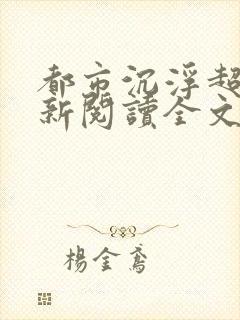 都市沉浮超
新閱讀全文
楊金鳶